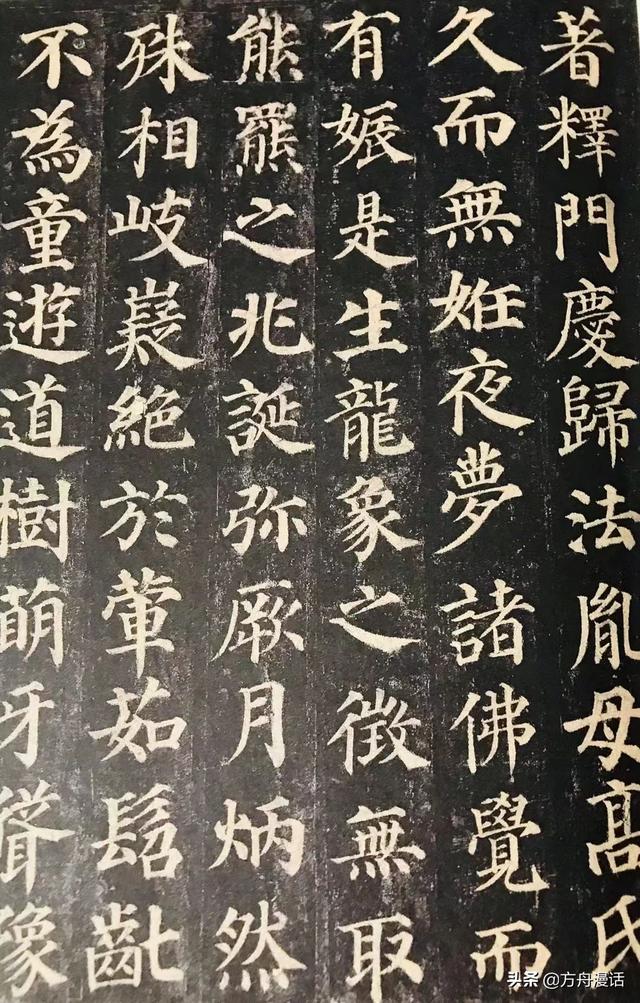 著釋門慶歸法胤母高氏
久而無姙夜夢諸佛覺而
有娠是生龍象之徵無取
熊羆之兆誕弥厥月炳然
殊相岐嶷絶於葷茹髫齔
不為童遊道樹萌牙聳豫
头条 @方舟漫话